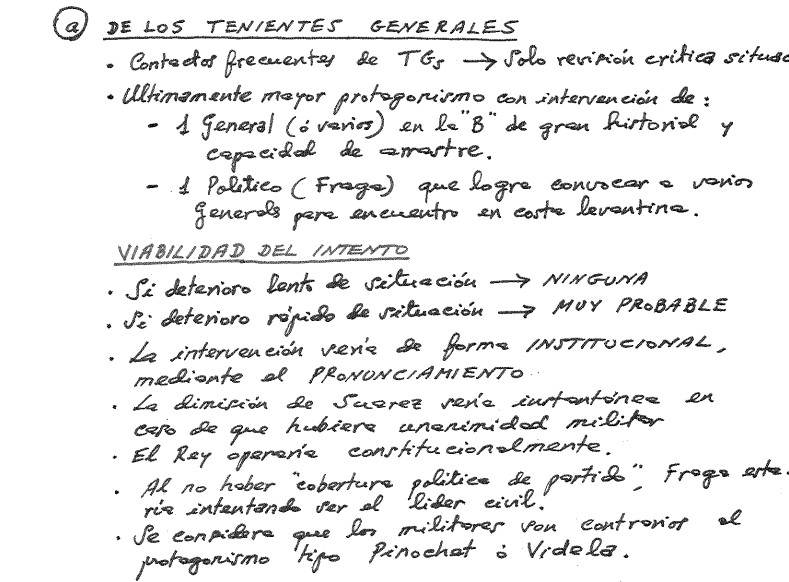 ⓐ DE LOS TENIENTES GENERALES
• Contactos frecuentes de TGs → Solo revisión crítica situac
• Ultimamente mayor protagonismo con intervención de:
- 1 General (ó varios) en la "B" de gran historial y
capacidad de arrastre.
- 1 Político (Fraga) que logra convocar a varios
Generals para encuentro en costa levantina.
VIABILIDAD DEL INTENTO
• Si deterioro lento de situación → NINGUNA
• Si deterioro rápido de situación → MUY PROBABLE
• La intervención sería de forma INSTITUCIONAL,
mediante el PRONUNCIAMIENTO
• La dimisión de Suarez sería instantánea en
caso de que hubiera unanimidad militar
• El Rey operaría constitucionalmente.
• Al no haber "cobertura política de partido", Fraga esta-
ría intentando ser el lider civil.
• Se considera que los militares son contrarios al
protagonismo tipo Pinochet ó Videla.